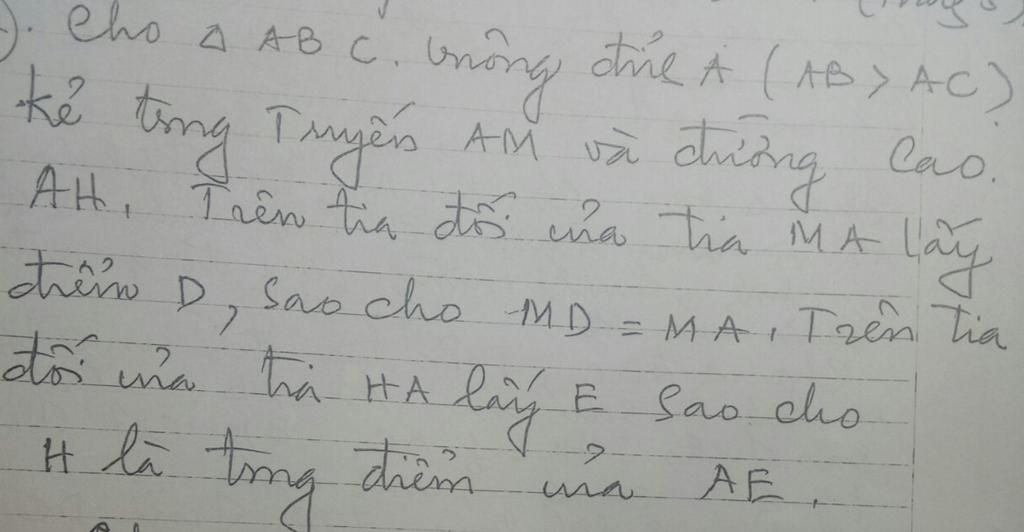 ). Cho △ ABC. vuông đỉnh A (AB > AC)
kẻ trung Truyến AM và đường Cao.
AH. Trên tia đối của tia MA lấy
điểm D, sao cho MD = MA. Trên tia
đối của tia HA lấy E sao cho
H là trung điểm của AE.